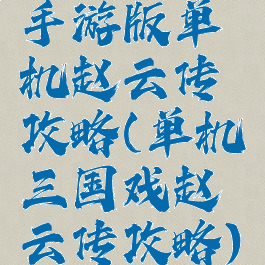 手游版单
机赵云传
攻略(单机
三国戏赵
云传攻略)